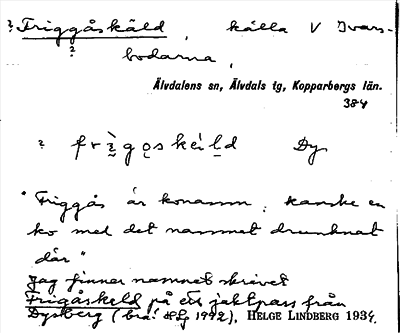 ? Friggåskäld, källa V Ivars-
?
bodarna,
Älvdalens sn, Älvdals tg, Kopparbergs län.
384
? frìgo̜skéld Dy
"Friggås är konamn; kanske en
ko med det namnet drunknat
där"
Jag finner namnet skrivet
Frigåskeld på ett jaktpass från
Dysberg (1992), HELGE LINDBERG 1934.